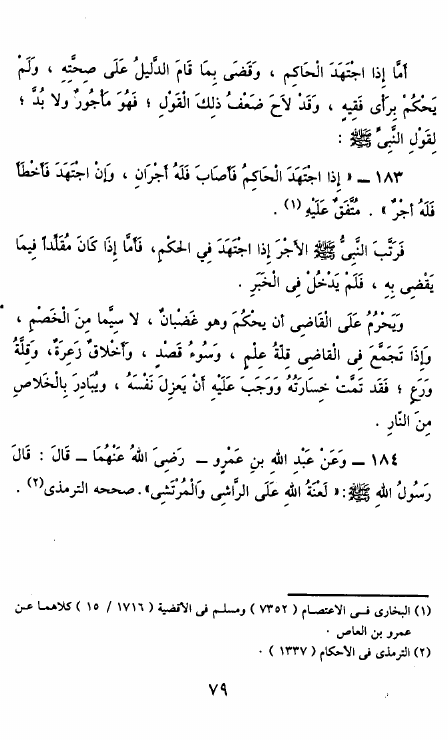 أَمَّا إِذَا اجْتَهَدَ الْحَاكِم ، وَقَضَى بِمَا قَامَ الدَّلِيلُ عَلَى صِحَّتِهِ ، وَلَمْ
يَحْكُمْ بِرَأْى فَقِيهٍ ، وَقَدْ لاَحَ ضَعْفُ ذلِكَ الْقَوْلِ ؛ فَهُوَ مَأْجُورٌ ولا بُدَّ ؛
لِقَوْلِ النَّبِىِّ ﷺ :
١٨٣ ــ « إِذَا اجْتَهَدَ الْحَاكِمُ فَأَصَابَ فَلَهُ أَجْرَانِ ، وَإِنْ اجْتَهَدَ فَأَخْطَأَ
فَلَهُ أَجْرٌ » . مُتَّفَقٌ عَلَيْهِ (١) .
فَرَتَّبَ النَّبِىُّ ﷺ الأَجْرَ إِذَا اجْتَهَدَ فِي الحْكمِ، فَأَمَّا إِذَا كَانَ مُقَلِّداً فِيمَا
يَقْضِى بِهِ ، فَلَمْ يَدْخُلْ فِى الْخَبَرِ .
وَيَحْرُمُ عَلَى الْقَاضِى أن يحْكُمَ وهو غَضْبَانٌ ، لا سِيَّمَا مِنَ الْخَصْمِ ،
وَإِذَا تَجَمَّعَ فِى الْقَاضِى قِلَّةُ عِلْمٍ ، وَسُوءُ قَصْدٍ ، وَأَخْلاَقٌ زَعِرَةٌ، وَقِلَّةُ
وَرَعٍ ؛ فَقَد تَمَّتْ خِسَارَتُهُ وَوَجَبَ عَلَيْهِ أَنْ يَعزِلَ نَفْسَهُ ، وَيُبَادِرَ بِالْخَلاَصِ
مِنَ النَّارِ .
١٨٤ ــ وَعَنْ عَبْدِ اللهِ بنِ عَمْرٍو ــ رَضِىَ اللهُ عَنْهُمَا ــ قَالَ : قَالَ
رَسُولُ اللهِ ﷺ : « لَعْنَةُ اللهِ عَلَى الرَّاشِى وَالْمُرْتَشِى» . صححه الترمذى (٢) .
(١) البخارى فـى الاعتصـام ( ٧٣٥٢ ) ومسلم فى الأقضية ( ١٧١٦ / ١٥ ) كلاهمـا عـن
عمرو بن العاص .
(٢) الترمذى فى الأحكام ( ١٣٣٧ ) .
٧٩